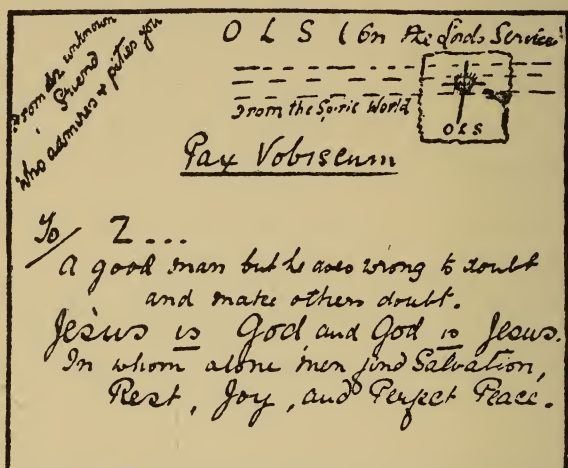 From an unknown
friend
who admires & pities you
O L S (On the Lords Service)
From the Spirit World
O L S
Pax Vobiscum
To Z...
A good man but he does wrong to doubt
and make others doubt.
Jesus is God and God is Jesus.
In whom alone men find Salvation,
Rest, Joy, and Perfect Peace.